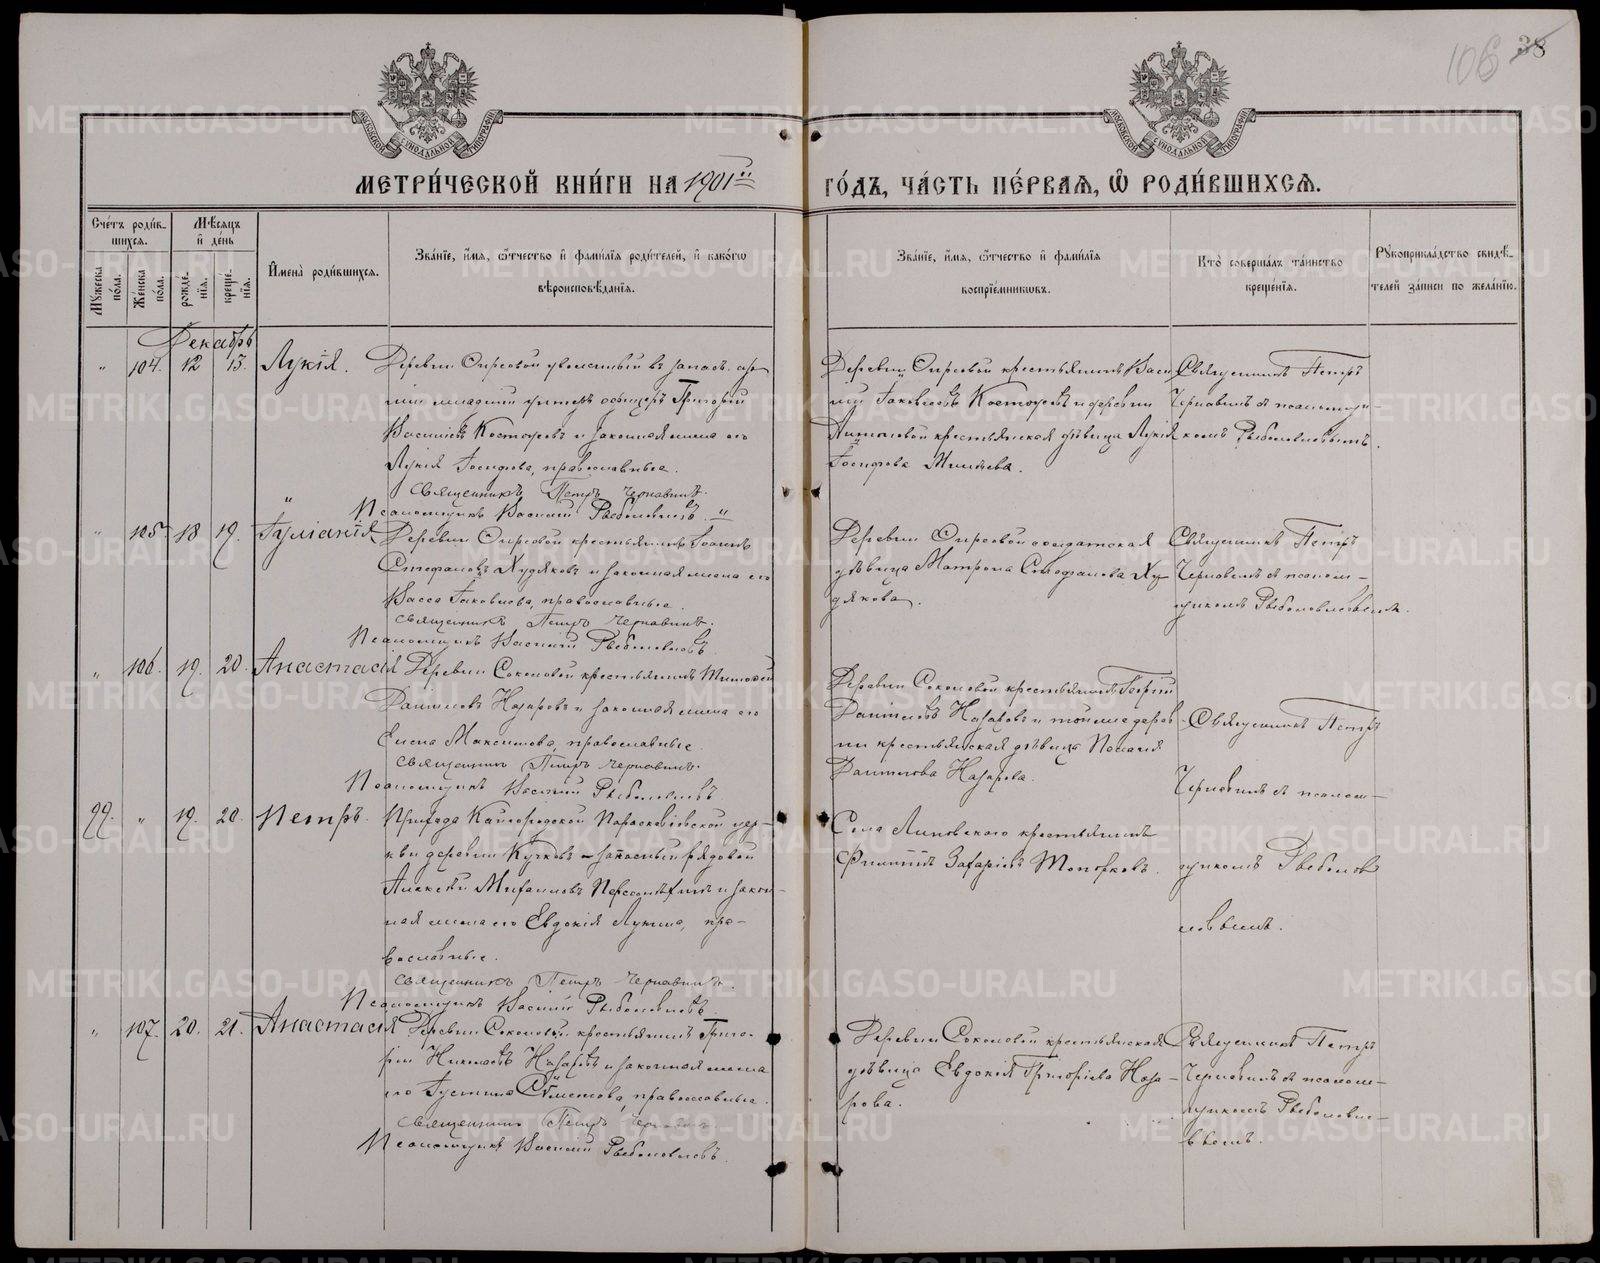 106 38
МОСКОВСКОЙ СѴНОДАЛЬНОЙ ТИПОГРАФІИ
МОСКОВСКОЙ СѴНОДАЛЬНОЙ ТИПОГРАФІИ
МЕТРИ́ЧЕСКОЙ КНИ́ГИ НА 1901й
ГО́ДЪ, ЧА́СТЬ ПЕ́РВАѦ, Ѽ РОДИ́ВШИХСѦ.
Сче́тъ роди́вшихсѧ.
Мꙋ́жеска по́ла.
Же́нска по́ла.
Мѣ́сѧцъ и҆ де́нь
рожде́нїѧ.
креще́нїѧ.
И҆мена̀ роди́вшихсѧ.
Зва́нїе, и҆́мѧ, ѻ҆́тчество и҆ фами́лїѧ роди́телей, и҆ како́гѡ
вѣроисповѣ́данїѧ.
Зва́нїе, и҆́мѧ, ѻ҆́тчество и҆ фами́лїѧ
воспрїе́мникѡвъ.
Кто̀ соверша́лъ та́инство
креще́нїѧ.
Рꙋкоприкла́дство свидѣ́телей за́писи по жела́нїю.
Декабрь
„ 104. 12 13. Лукія.
Деревни Опрсовой уволенный въ запасъ ар
міи младшій унтеръ офицеръ Григорій
Васильевъ Костоусовъ и законная жена его
Лукія Іосифова, православные.
Священникъ Петръ Чернавинъ.
Псаломщикъ Василій Рыболовлевъ
Деревни крестьянинъ Васи
лій Іаковлевъ Костоусовъ и деревни
крестьянская дѣвица Лукія
Іосифова
Священникъ Петръ
Чернавинъ съ псаломщи-
комъ Рыболовлевымъ.
„ 105. 18 19. Іуліанія
Деревни крестьянинъ Іоаннъ
Стефановъ Худяковъ и законная жена его
Васса Іаковлева, православные.
Священникъ Петръ Чернавинъ.
Псаломщикъ Василій Рыболовлевъ.
Деревни солдатская
дѣвица Матрона Стефанова Ху-
дякова.
Священникъ Петръ
Чернавинъ съ псалом-
щикомъ Рыболовлевымъ.
„ 106. 19. 20. Анастасія
Деревни Соколовой крестьянинъ Тимофей
Даниловъ Назаровъ и законная жена его
Елена Максимова, православные.
Священникъ Петръ Чернавинъ.
Псаломщикъ Василій Рыболовлевъ
Деревни Соколовой крестьянинъ Георгій
Даніиловъ Назаровъ и той же дерев
ни крестьянская дѣвица Пелагія
Даніилова Назарова.
Священникъ Петръ
Чернавинъ съ псалом-
щикомъ Рыболов
левымъ.
99. „ 19. 20. Петръ.
Прихода Кайгородской Параскевіевской цер-
кви деревни запасный рядовой
Алексѣй Михаиловъ и закон-
ная жена его Евдокія Лукина, пра-
вославные.
Священникъ Петръ Чернавинъ.
Псаломщикъ Василій Рыболовлевъ.
Села Липовскаго крестьянинъ
Филиппъ Захаріевъ Топорковъ.
„ 107. 20. 21. Анастасія
Деревни Соколовой крестьянинъ Григо-
рій Николаевъ Назаровъ и законная жена
его Іустина Симеонова, православные.
Священникъ Петръ Чернавинъ
Псаломщикъ Василій Рыболовлевъ.
Деревни Соколовой крестьянская
дѣвица Евдокія Григоріева Наза-
рова.
Священникъ Петръ
Чернавинъ съ псалом-
щикомъ Рыболовле-
вымъ.
METRIKI.GASO-URAL.RU